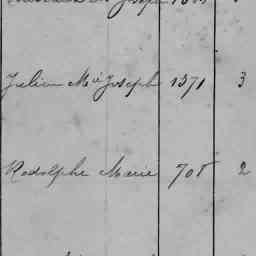 Joseph
Julien Mie Joseph 1371 3
Rodolphe Marie 708 2